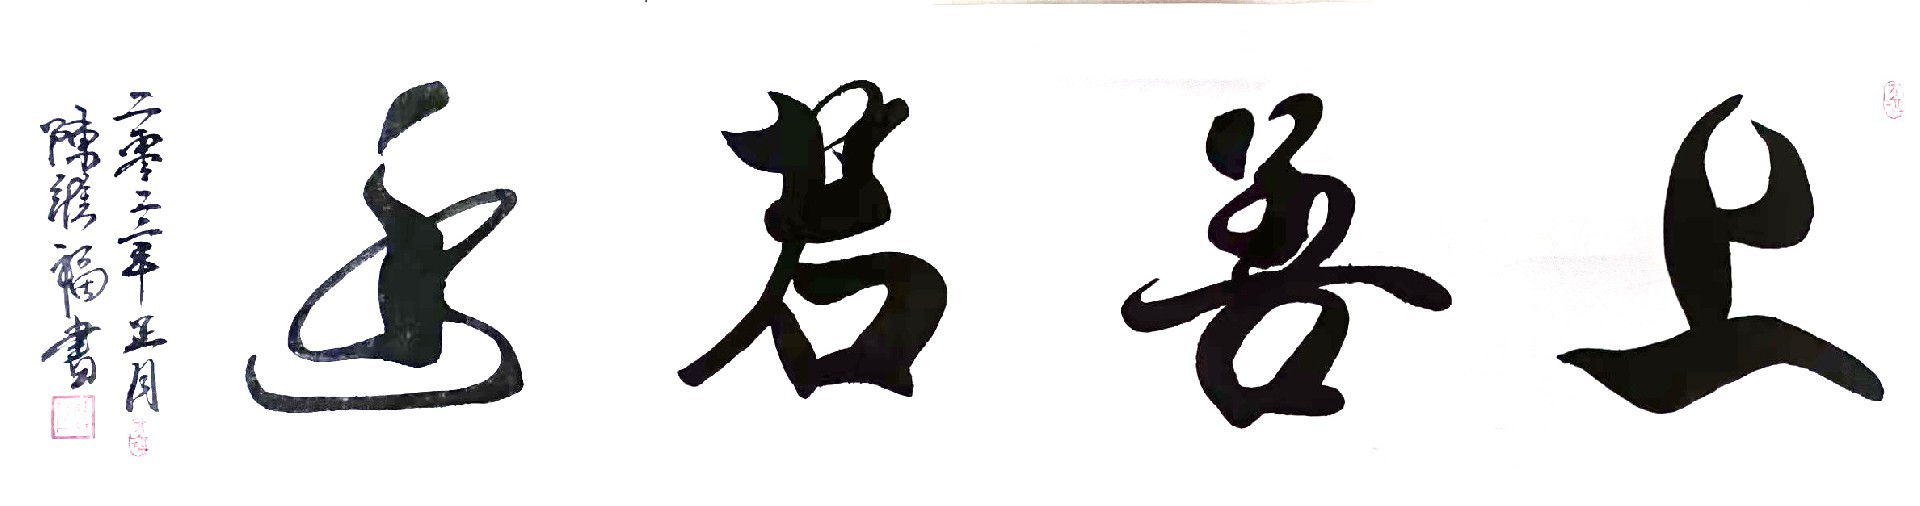 上善若水
二零二三年正月
陳福書